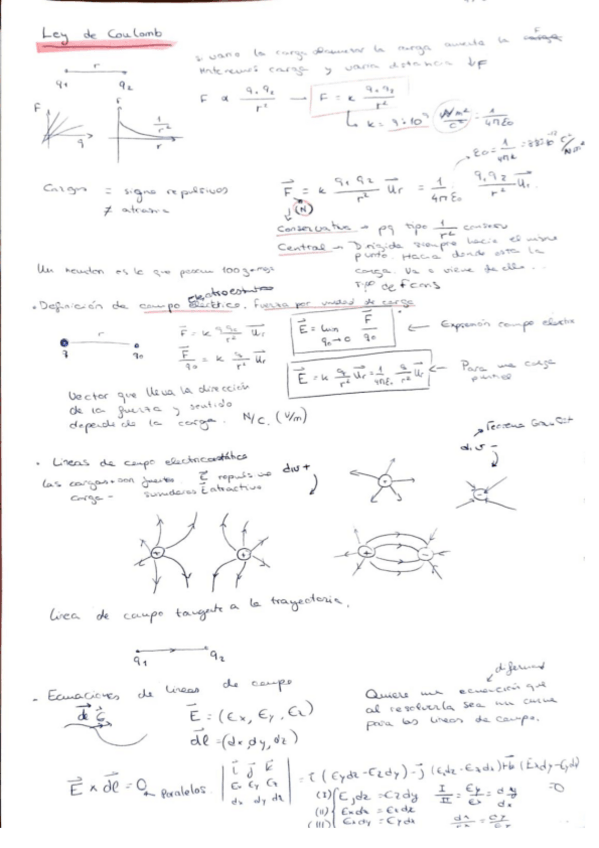 Ley de Coulomb
si varia la carga aumentar la carga aumenta la F
Mantenemos carga y varia distancia ↓F
r
q₁ q₂
F ∝ q₁q₂/r² → F = k q₁q₂/r²
F F 1/r²
q r
k = 9·10⁹ Nm²/C² = 1/4πε₀
Cargas = signo repulsivos
≠ atractiva
F = k q₁q₂/r² Ur = 1/4πε₀ q₁q₂/r² Ur
(N)
Conservativa → pq tipo 1/r² conserv
Central → Dirigida siempre hacia el mismo
punto. Hacia donde esta la
carga. Va o viene de ella...
Un newton es lo que pesan 100 gramos
tipo de fcons
electrostático
· Definición de campo eléctrico. Fuerza por unidad de carga
r
q q₀
F = k qq₀/r² Ur
F/q₀ = k q/r² Ur
E = lim q₀→0 F/q₀ ← Expresión campo eléctrico
E = k q/r² Ur = 1/4πε₀ q/r² Ur ← Para una carga
puntual
Vector que lleva la dirección
de la fuerza y sentido
depende de la carga. N/C. (V/m)
Teorema Gauss
· Lineas de campo electrostático
div + div -
Las cargas + son fuentes. E repulsivo
carga - sumideros E atractivo
+ -
+ + + -
Linea de campo tangente a la trayectoria.
q₁ q₂
- Ecuaciones de lineas de campo
dl E
E = (Ex, Ey, Ez)
dl = (dx, dy, dz)
Quiere una ecuación que
al resolverla sea un curva
para las lineas de campo.
E × dl = 0 Paralelos
i j k
Ex Ey Ez
dx dy dz
= i (Eydz - Ezdy) - j (Exdz - Ezdx) + k (Exdy - Eydx)
=0
(I) Eydz = Ezdy
(II) Exdz = Ezdx
(III) Exdy = Eydx
I/II = Ey/Ex = dy/dx